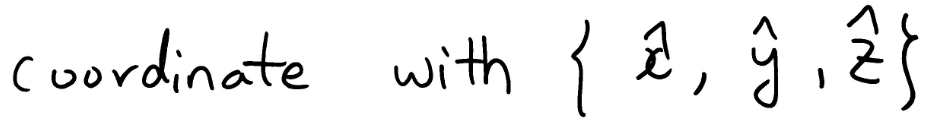 coordinate with { x̂, ŷ, ẑ}